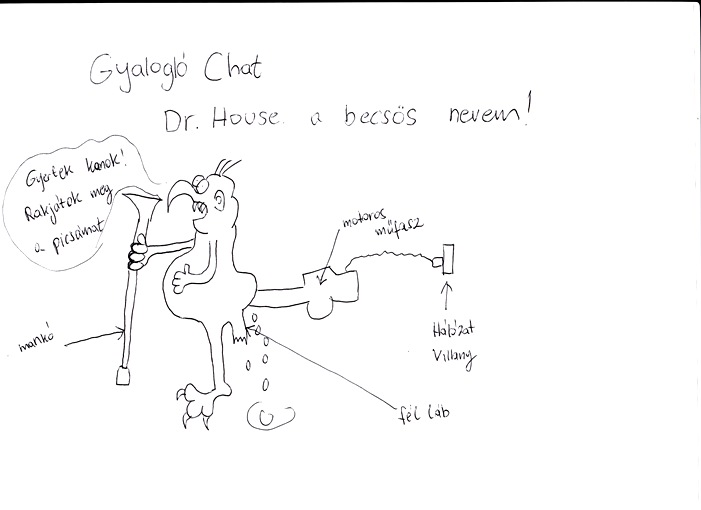 Gyalogló Chat
Dr. House a becsös nevem!
Gyertek kanok!
Rakjátok meg
a picsámat
motoros
műfasz
mankó
Hálózat
Villany
fél láb